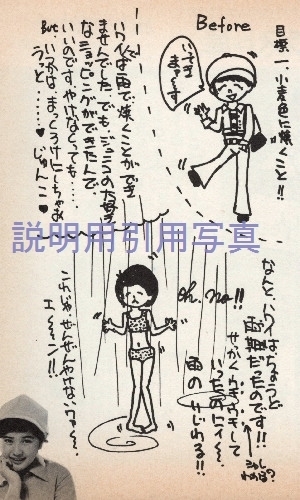 Before
目標一、小麦色に焼くこと!!
いってき
まぁ〜す
ハワイは雨で焼くことができ
ませんでした。でも、ジュンコの大好き
なショッピングができたんで
いいのです。やけなくっても……
But いつかは、まっくろけにしちゃお
うっと……♥じゅんこ♥
説明用引用写真
なんと、ハワイはちょうど
雨期だったのです!!
シャレ
わかる?
せっかくウキウキして
いったのにィ〜。
雨のいじわる!!
Oh, no!!
これじゃぜんぜんやけないワァ〜。
エ〜〜ン!!